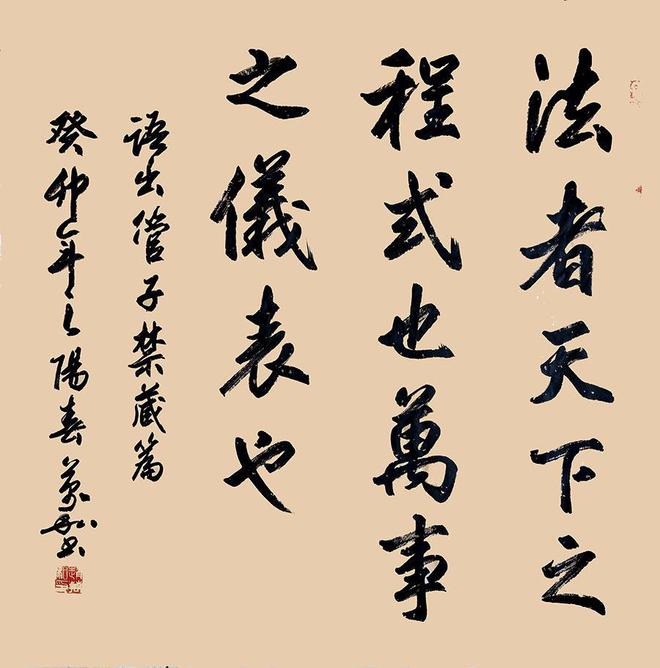 法者天下之
程式也萬事
之儀表也
語出管子禁藏篇
癸卯年之陽春